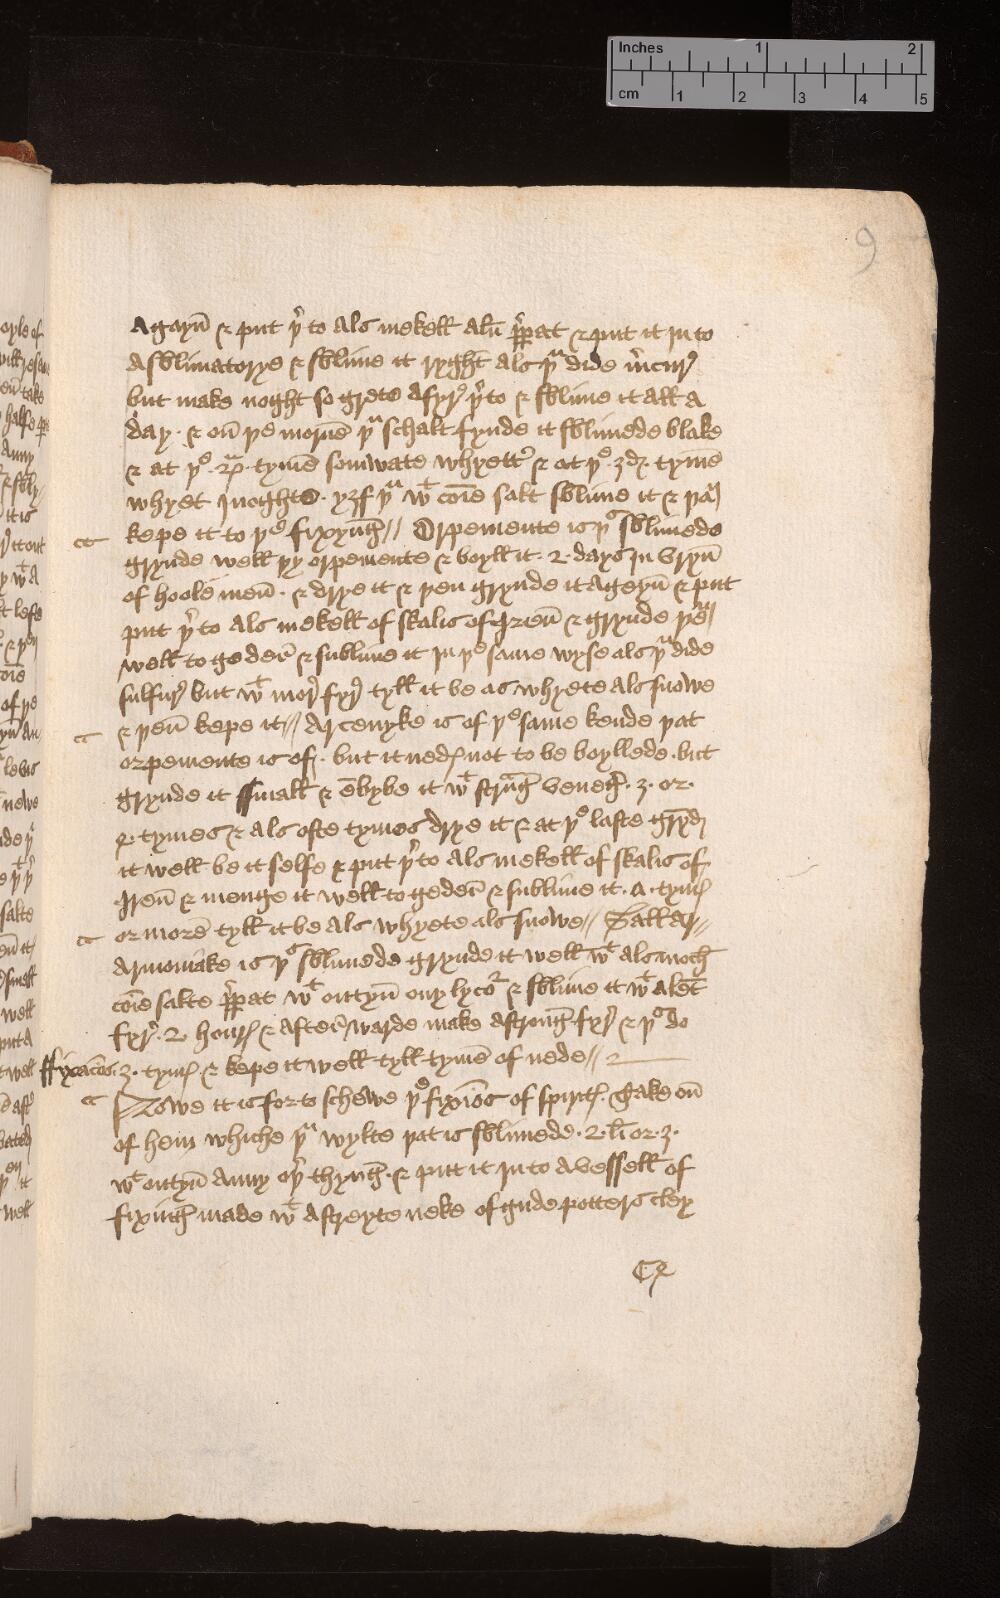 9
Agayn̄ & put þ̉ to als mekell alū p̄p̉at & put it Into
A sblimatorye & sblime it ryght als þᵘ dide m̉cur̉
but make noght so grete a fyr̉ þ̉to & sblime it all a
day · & on̄ þe morne þᵘ schalt fynde it sblimede blake
& at þᵉ .2. tyme somwate whyett̉ & at þᵉ .3. tyme
whyet Inoghte · yf þᵘ wᵗ cōie salt sblime it & þan̄
kepe it to þᵉ fixynḡ // Orpemente is þᵘˢ sblimede
grynde well þy orpemente & boyll it .2. days In Vryn̄
of hoole men̄ · & drye it & þen grynde it ageyn̄ & put
put þ̉ to als mekell of skalis of Iren̄ & grynde þē
well to geder̄ & sublime it In þᵉ same wyse als þᵘ dide
sulfur̉ but wᵗ mor̉ fyr̉ tyll it be as whyete als snowe
& þen̄ kepe it // Arcenyke is of þᵉ same kende þat
orpemente is of · but it nedꝭ not to be boyllede · but
grynde it small & ēbybe it wᵗ strāḡ veneg̉ .3. or
4 · tymes & als ofte tymes drye it & at þᵉ laste gryd̄
it well be it selfe & put þ̉to als mekell of skalis of
Iren̄ & menge it well to geder̄ & sublime it · a · tymꝭ
or more tyll it be als whyete als snowe // Sall Ar//
Armoniake is þᵘˢ sblimede grynde it well wᵗ als moch̄
cōie salte p̄p̉at wᵗ outtyn̄ ony lycoʳ & sblime it wᵗ a lēt
fyr̉ · 2 hourꝭ & aft̉ warde make a stronḡ fyr̉ & þᵘˢ do
ffixacōs .3. tymꝭ & kepe it well tyll tyme of nede //
Nowe it is for to schewe þᵉ fixiōs of spirtꝭ · Take on̄
of hem whiche þᵘ wylte þat is sblimede · 2 · li or · 3 ·
wᵗ outtyn̄ Anny oþ̉ thynḡ · & putt it In to a vessell of
fixinḡ made wᵗ a streyte neke of gude potters cley